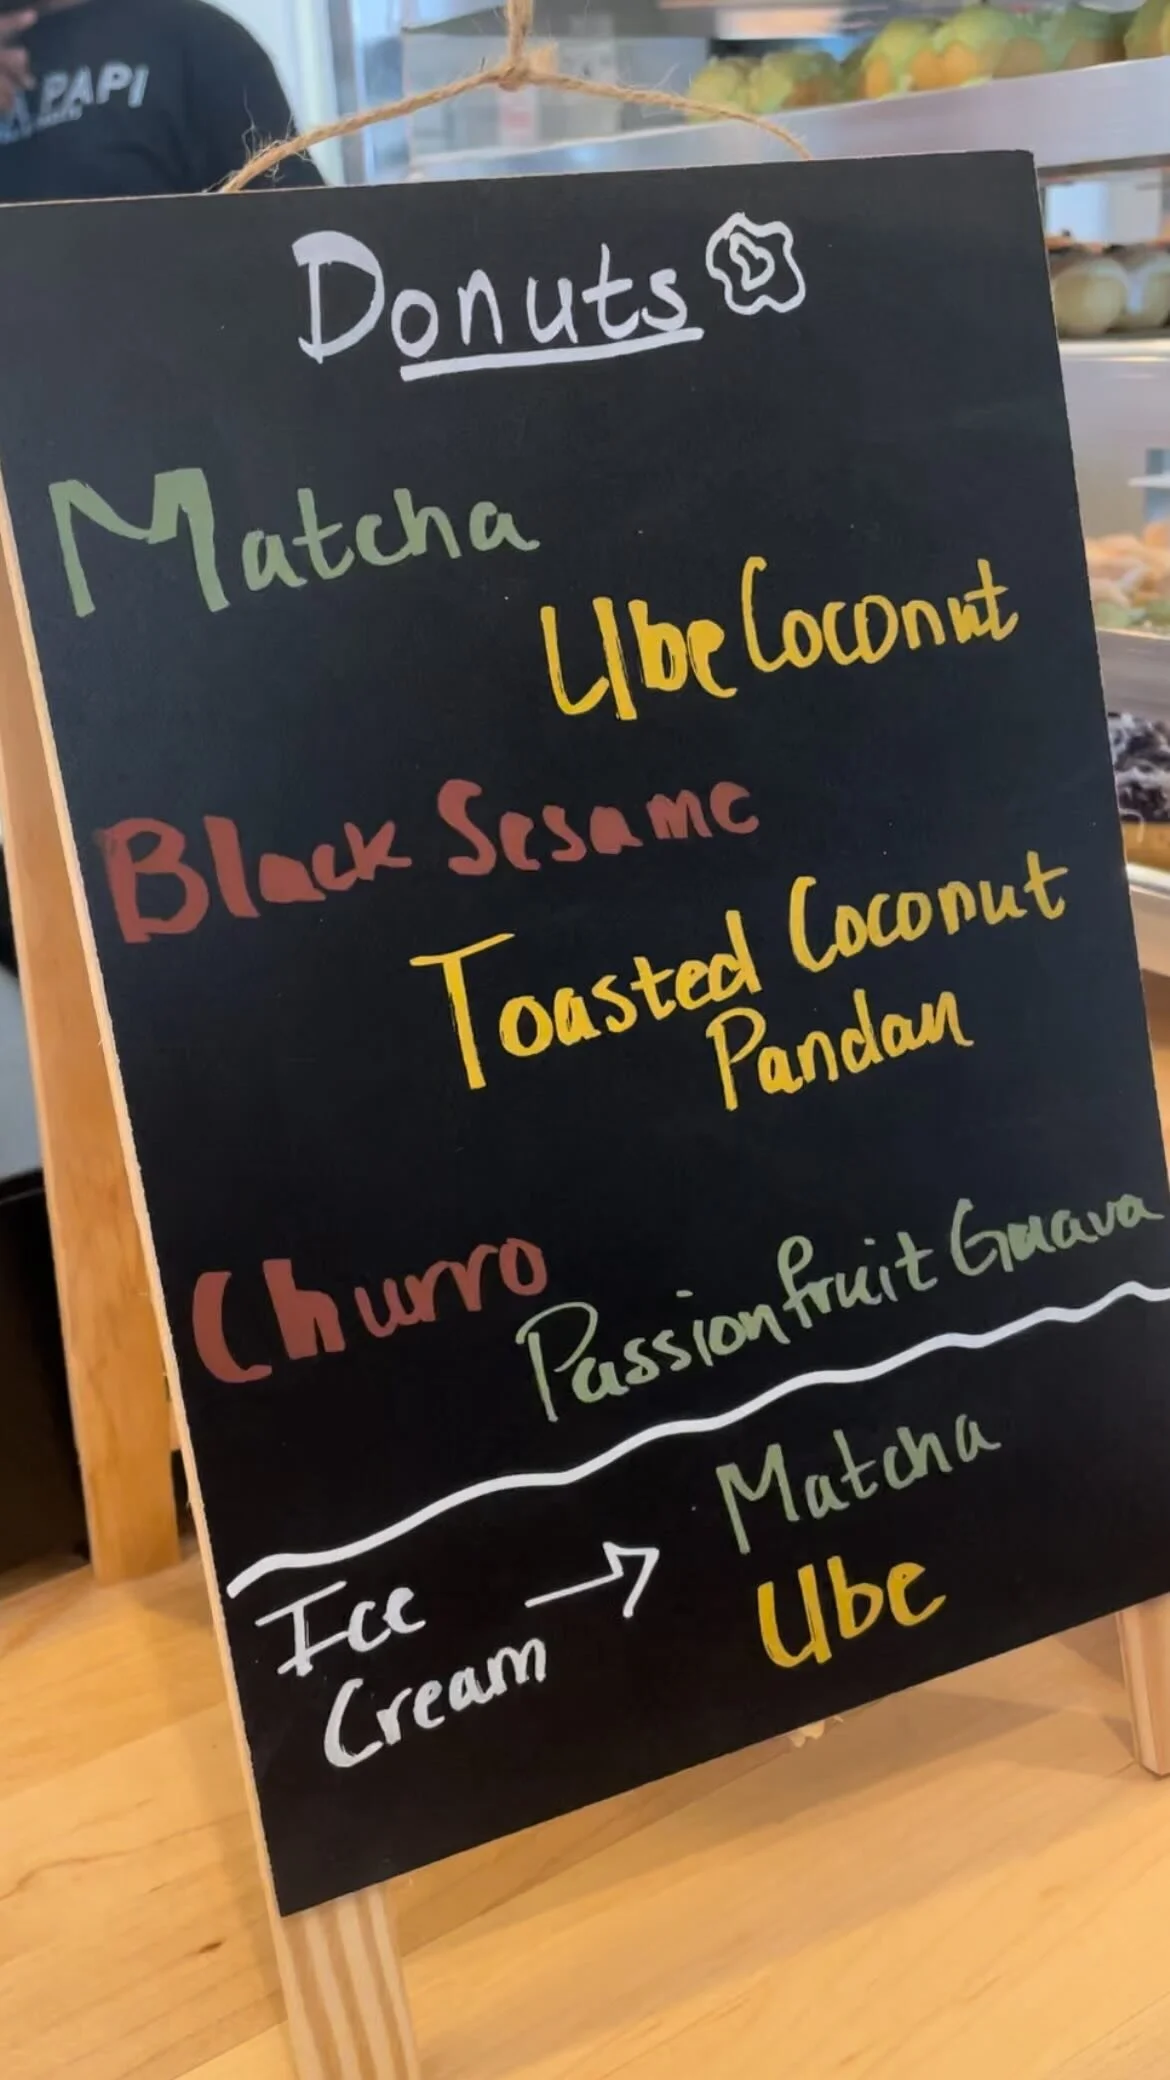 PAPI
Donuts
Matcha
Ube Coconut
Black Sesame
Toasted Coconut
Pandan
Churro
Passionfruit Guava
Ice
Cream
Matcha
Ube